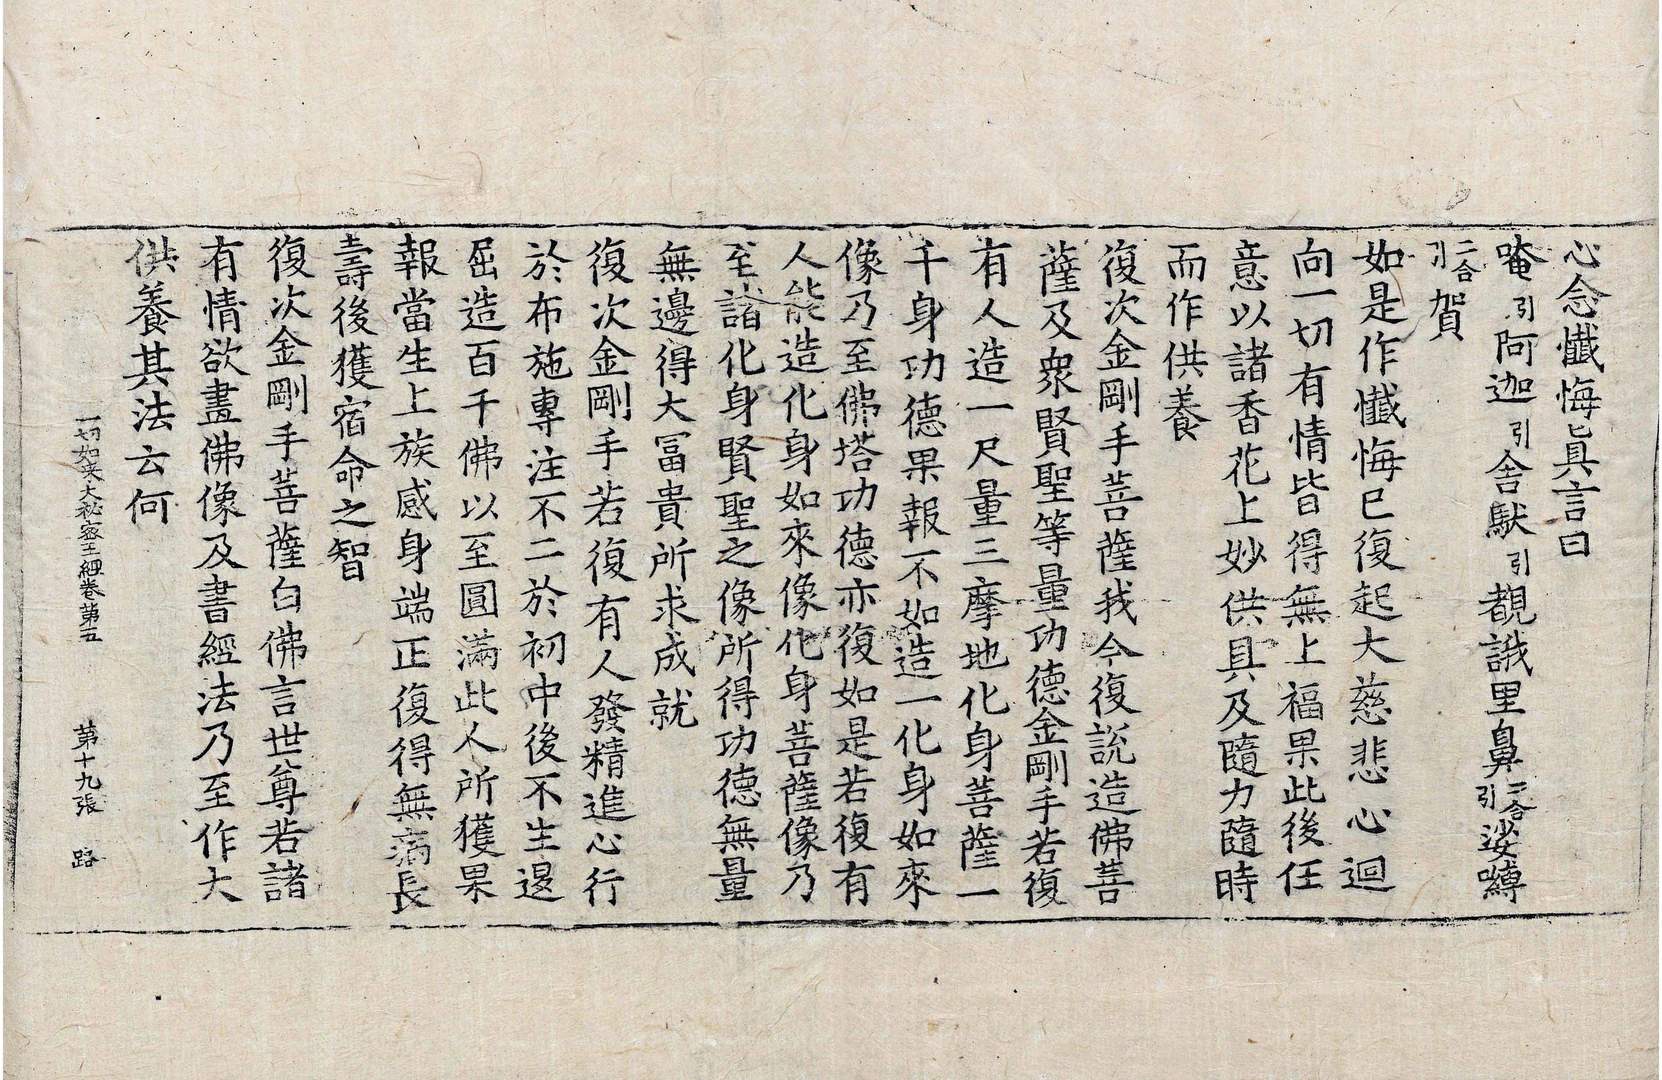 心念懺悔真言曰
唵引阿迦引舍馱引覩誐里鼻二合引娑嚩
二合引賀
如是作懺悔已復起大慈悲心迴
向一切有情皆得無上福果此後任
意以諸香花上妙供具及隨力隨時
而作供養
復次金剛手菩薩我今復說造佛菩
薩及衆賢聖等量功德金剛手若復
有人造一尺量三摩地化身菩薩一
千身功德果報不如造一化身如來
像乃至佛塔功德亦復如是若復有
人能造化身如來像化身菩薩像乃
至諸化身賢聖之像所得功德無量
無邊得大冨貴所求成就
復次金剛手若復有人發精進心行
於布施專注不二於初中後不生退
屈造百千佛以至圓滿此人所獲果
報當生上族感身端正復得無病長
壽後獲宿命之智
復次金剛手菩薩白佛言世尊若諸
有情欲畫佛像及書經法乃至作大
供養其法云何
一切如来大秘密王經卷第五 第十九張 路